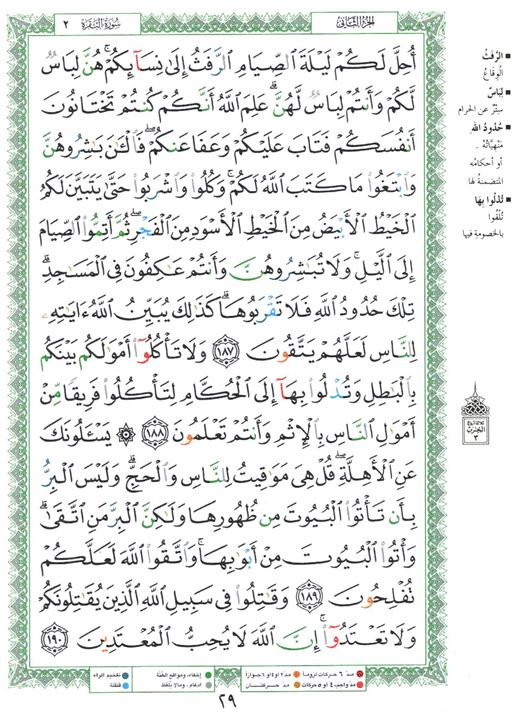 سُورَةُ البَقَرَةِ ٢
الجزء الثاني
أُحِلَّ لَكُمْ لَيْلَةَ ٱلصِّيَامِ ٱلرَّفَثُ إِلَىٰ نِسَآئِكُمْ ۚ هُنَّ لِبَاسٌ
لَّكُمْ وَأَنتُمْ لِبَاسٌ لَّهُنَّ ۗ عَلِمَ ٱللَّهُ أَنَّكُمْ كُنتُمْ تَخْتَانُونَ
أَنفُسَكُمْ فَتَابَ عَلَيْكُمْ وَعَفَا عَنكُمْ ۖ فَٱلْـَٰٔنَ بَٰشِرُوهُنَّ
وَٱبْتَغُوا۟ مَا كَتَبَ ٱللَّهُ لَكُمْ ۚ وَكُلُوا۟ وَٱشْرَبُوا۟ حَتَّىٰ يَتَبَيَّنَ لَكُمُ
ٱلْخَيْطُ ٱلْأَبْيَضُ مِنَ ٱلْخَيْطِ ٱلْأَسْوَدِ مِنَ ٱلْفَجْرِ ۖ ثُمَّ أَتِمُّوا۟ ٱلصِّيَامَ
إِلَى ٱلَّيْلِ ۚ وَلَا تُبَٰشِرُوهُنَّ وَأَنتُمْ عَٰكِفُونَ فِى ٱلْمَسَٰجِدِ ۗ
تِلْكَ حُدُودُ ٱللَّهِ فَلَا تَقْرَبُوهَا ۗ كَذَٰلِكَ يُبَيِّنُ ٱللَّهُ ءَايَٰتِهِۦ
لِلنَّاسِ لَعَلَّهُمْ يَتَّقُونَ ١٨٧ وَلَا تَأْكُلُوٓا۟ أَمْوَٰلَكُم بَيْنَكُم
بِٱلْبَٰطِلِ وَتُدْلُوا۟ بِهَآ إِلَى ٱلْحُكَّامِ لِتَأْكُلُوا۟ فَرِيقًا مِّنْ
أَمْوَٰلِ ٱلنَّاسِ بِٱلْإِثْمِ وَأَنتُمْ تَعْلَمُونَ ١٨٨ ۞ يَسْـَٔلُونَكَ
عَنِ ٱلْأَهِلَّةِ ۖ قُلْ هِىَ مَوَٰقِيتُ لِلنَّاسِ وَٱلْحَجِّ ۗ وَلَيْسَ ٱلْبِرُّ
بِأَن تَأْتُوا۟ ٱلْبُيُوتَ مِن ظُهُورِهَا وَلَٰكِنَّ ٱلْبِرَّ مَنِ ٱتَّقَىٰ ۗ
وَأْتُوا۟ ٱلْبُيُوتَ مِنْ أَبْوَٰبِهَا ۚ وَٱتَّقُوا۟ ٱللَّهَ لَعَلَّكُمْ
تُفْلِحُونَ ١٨٩ وَقَٰتِلُوا۟ فِى سَبِيلِ ٱللَّهِ ٱلَّذِينَ يُقَٰتِلُونَكُمْ
وَلَا تَعْتَدُوٓا۟ ۚ إِنَّ ٱللَّهَ لَا يُحِبُّ ٱلْمُعْتَدِينَ ١٩٠
■ الرَّفَثُ
الوِقاعُ
■ لِبَاسٌ
سِتْرٌ عن الحرام
■ حُدُودُ الله
منهيّاتُه
أو أحكامُه
المتضمنة لها
■ تُدْلُوا بِهَا
تُلْقُوا
بالخصومةِ فيها
الحزب
٣
مدّ ٦ حركات لزوماً
مدّ ٢ أو ٤ أو ٦ جوازاً
إخفاء، ومواقع الغُنَّة
تفخيم الراء
مدّ واجب ٤ أو ٥ حركات
مدّ حركتان
إدغام، وما لا يُلفَظ
قلقلة
٢٩